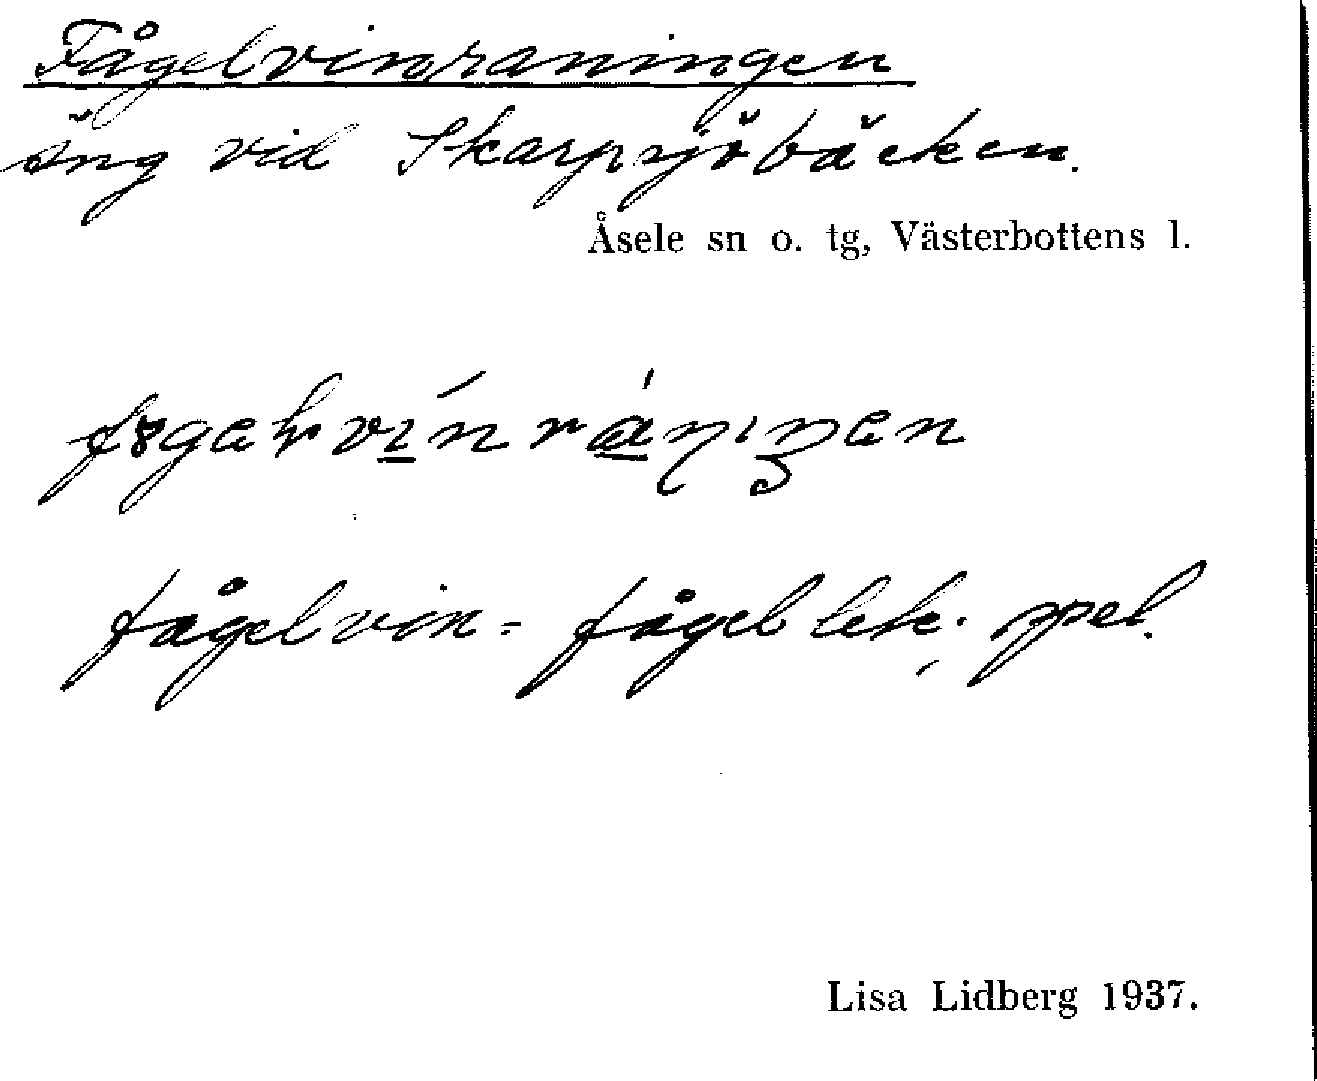 Fågelvinraningen
äng vid Skarpsjöbäcken.
Åsele sn o. tg, Västerbottens l.
fågelvin = fågellek, spel.
Lisa Lidberg 1937.